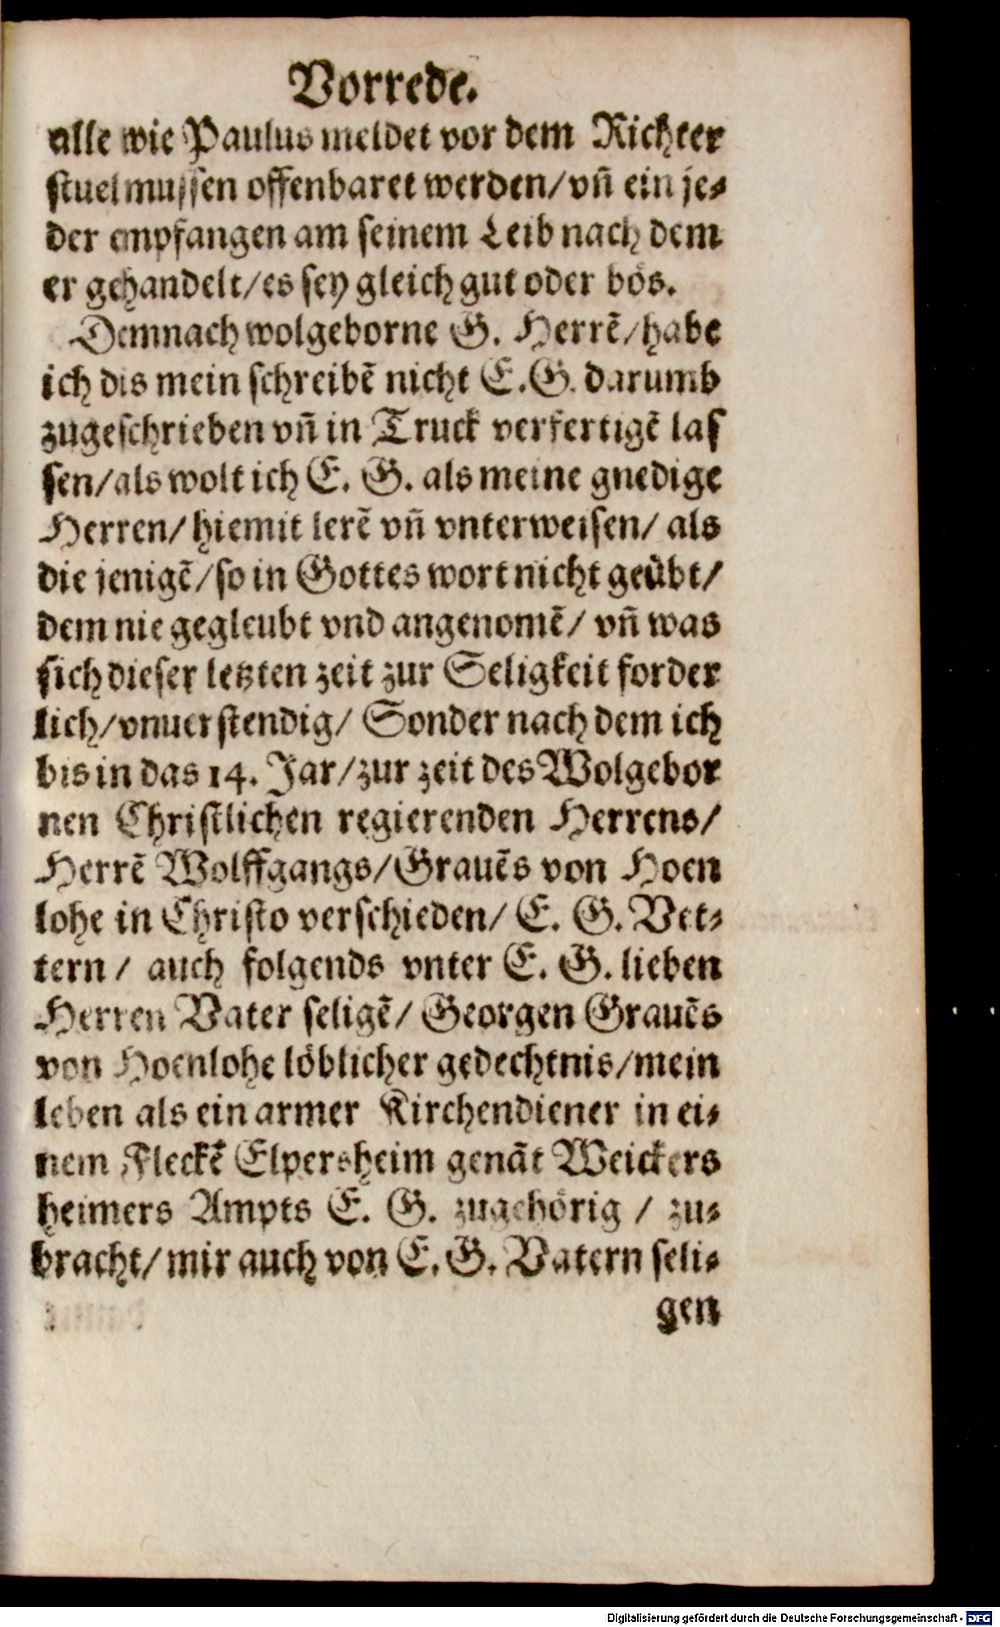 Vorrede.
alle wie Paulus meldet vor dem Richter
stuel mussen offenbaret werden/vn̄ ein je⸗
der empfangen am seinem Leib nach dem
er gehandelt/es sey gleich gut oder bös.
Demnach wolgeborne G. Herrē/habe
ich dis mein schreibē nicht E.G. darumb
zugeschrieben vn̄ in Truck verfertigē las
sen/als wolt ich E. G. als meine gnedige
Herren/hiemit lerē vn̄ vnterweisen/ als
die jenigē/so in Gottes wort nicht geübt/
dem nie gegleubt vnd angenomē/ vn̄ was
sich dieser letzten zeit zur Seligkeit forder
lich/vnuerstendig/ Sonder nach dem ich
bis in das 14. Jar/zur zeit des Wolgebor
nen Christlichen regierenden Herrens/
Herrē Wolffgangs/Grauēs von Hoen
lohe in Christo verschieden/ E. G. Vet⸗
tern/ auch folgends vnter E. G. lieben
Herren Vater seligē/ Georgen Grauēs
von Hoenlohe löblicher gedechtnis/mein
leben als ein armer Kirchendiener in ei⸗
nem Fleckē Elpersheim genāt Weickers
heimers Ampts E. G. zugehörig / zu⸗
bracht/mir auch von E.G. Vatern seli⸗
gen
Digitalisierung gefördert durch die Deutsche Forschungsgemeinschaft - DFG